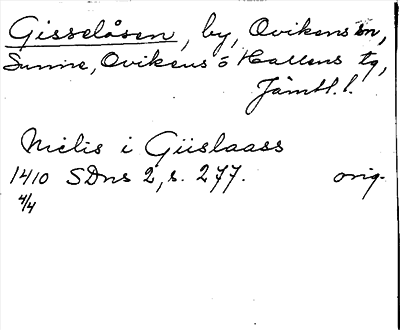 Gisselåsen, by, Ovikens sn,
Sunne, Ovikens o Hallens tg,
Jämtl. l.
Nielis i Giislaass
1410 SDns 2, s. 277. orig.
4/4